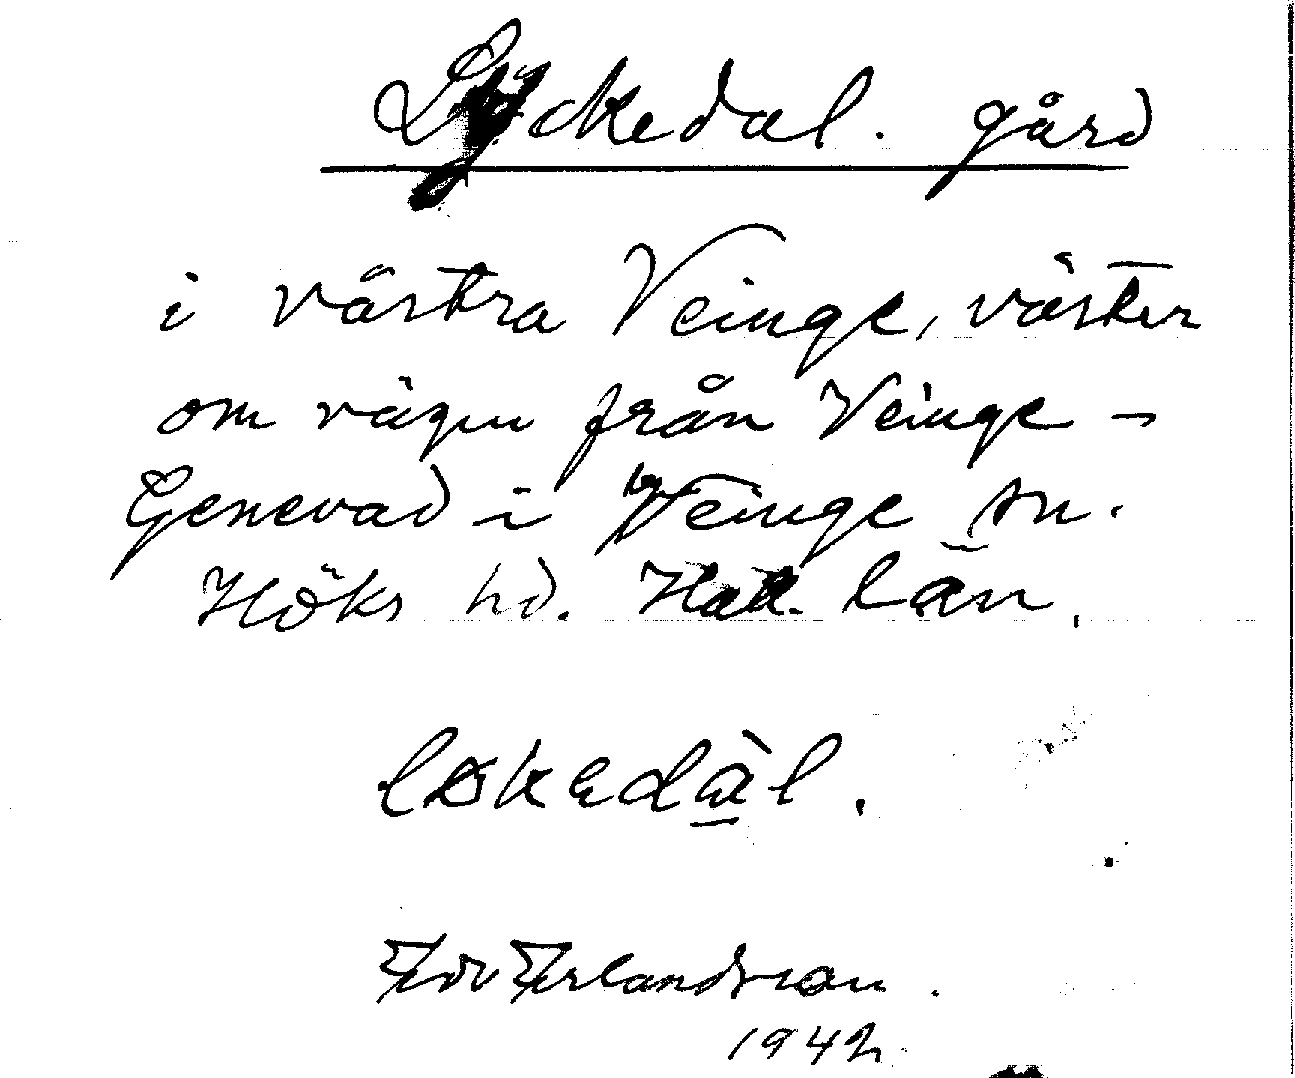 Lyckedal. gård
i västra Veinge, väster
om vägen från Veinge -
Genevad i Veinge sn.
Höks hd. Hall. län.
1942